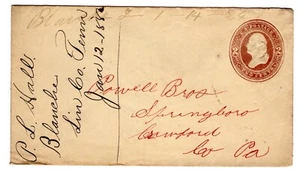 Blanche
P. L. Hall
Blanche
Lin Co Tenn
Jan 12. 188
Powell Bros
Springboro
Crawford
Co Pa